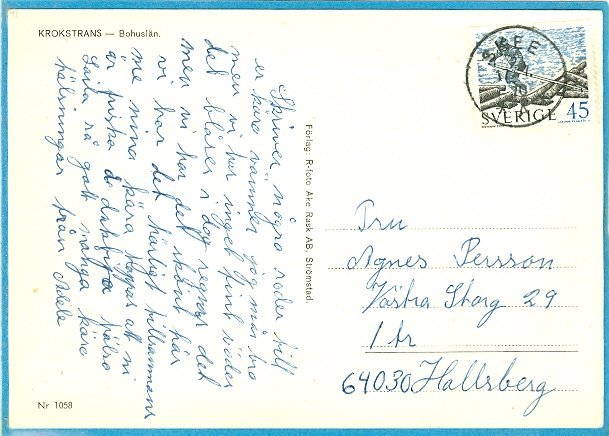 KROKSTRANS — Bohuslän.
Skriver några rader till
er kära vänner jag mår bra
men vi har inget fint väder
det blåser i dag regnar det
men vi har det skönt här
vi har det härligt tillsammans
me mina kära hoppas att ni
är friska å duktiga hälsa
Laila så gott många kära
hälsningar från Adele
Nr 1058
Förlag: R-foto Åke Rask AB, Strömstad.
SVERIGE 45
Fru
Agnes Persson
Västra Storg 29
1 tr
64030 Hallsberg